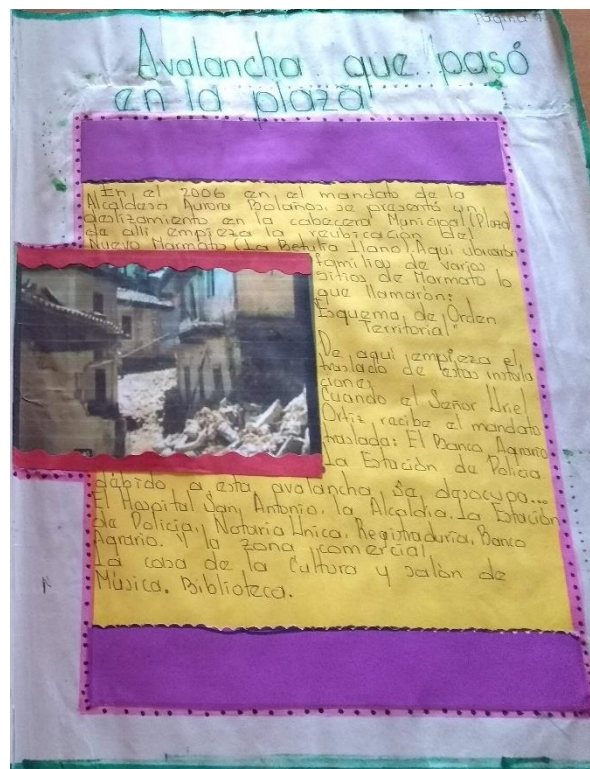 Página
Avalancha que pasó
en la plaza
En el 2006 en el mandato de la
Alcaldesa Aurora Bolaños, se presentó un
deslizamiento en la cabecera Municipal (Plaza)
de alli empieza la reubicación del
Nuevo Marmato (La Betulia Llano). Aqui ubicaron
familias de varios
sitios de Marmato lo
que llamaron:
Esquema de Orden
Territorial"
De aqui empieza el
traslado de estas instala
ciones
Cuando el Señor Uriel
Ortiz recibe el mandato
traslada: El Banco Agrario
La Estación de Policia.
débido a esta avalancha se desocupa...
El Hospital San Antonio, la Alcaldia, la Estación
de Policia, Notaria Unica, Registraduria, Banco
Agrario. y la zona comercial
La casa de la Cultura y salón de
Música. Biblioteca.